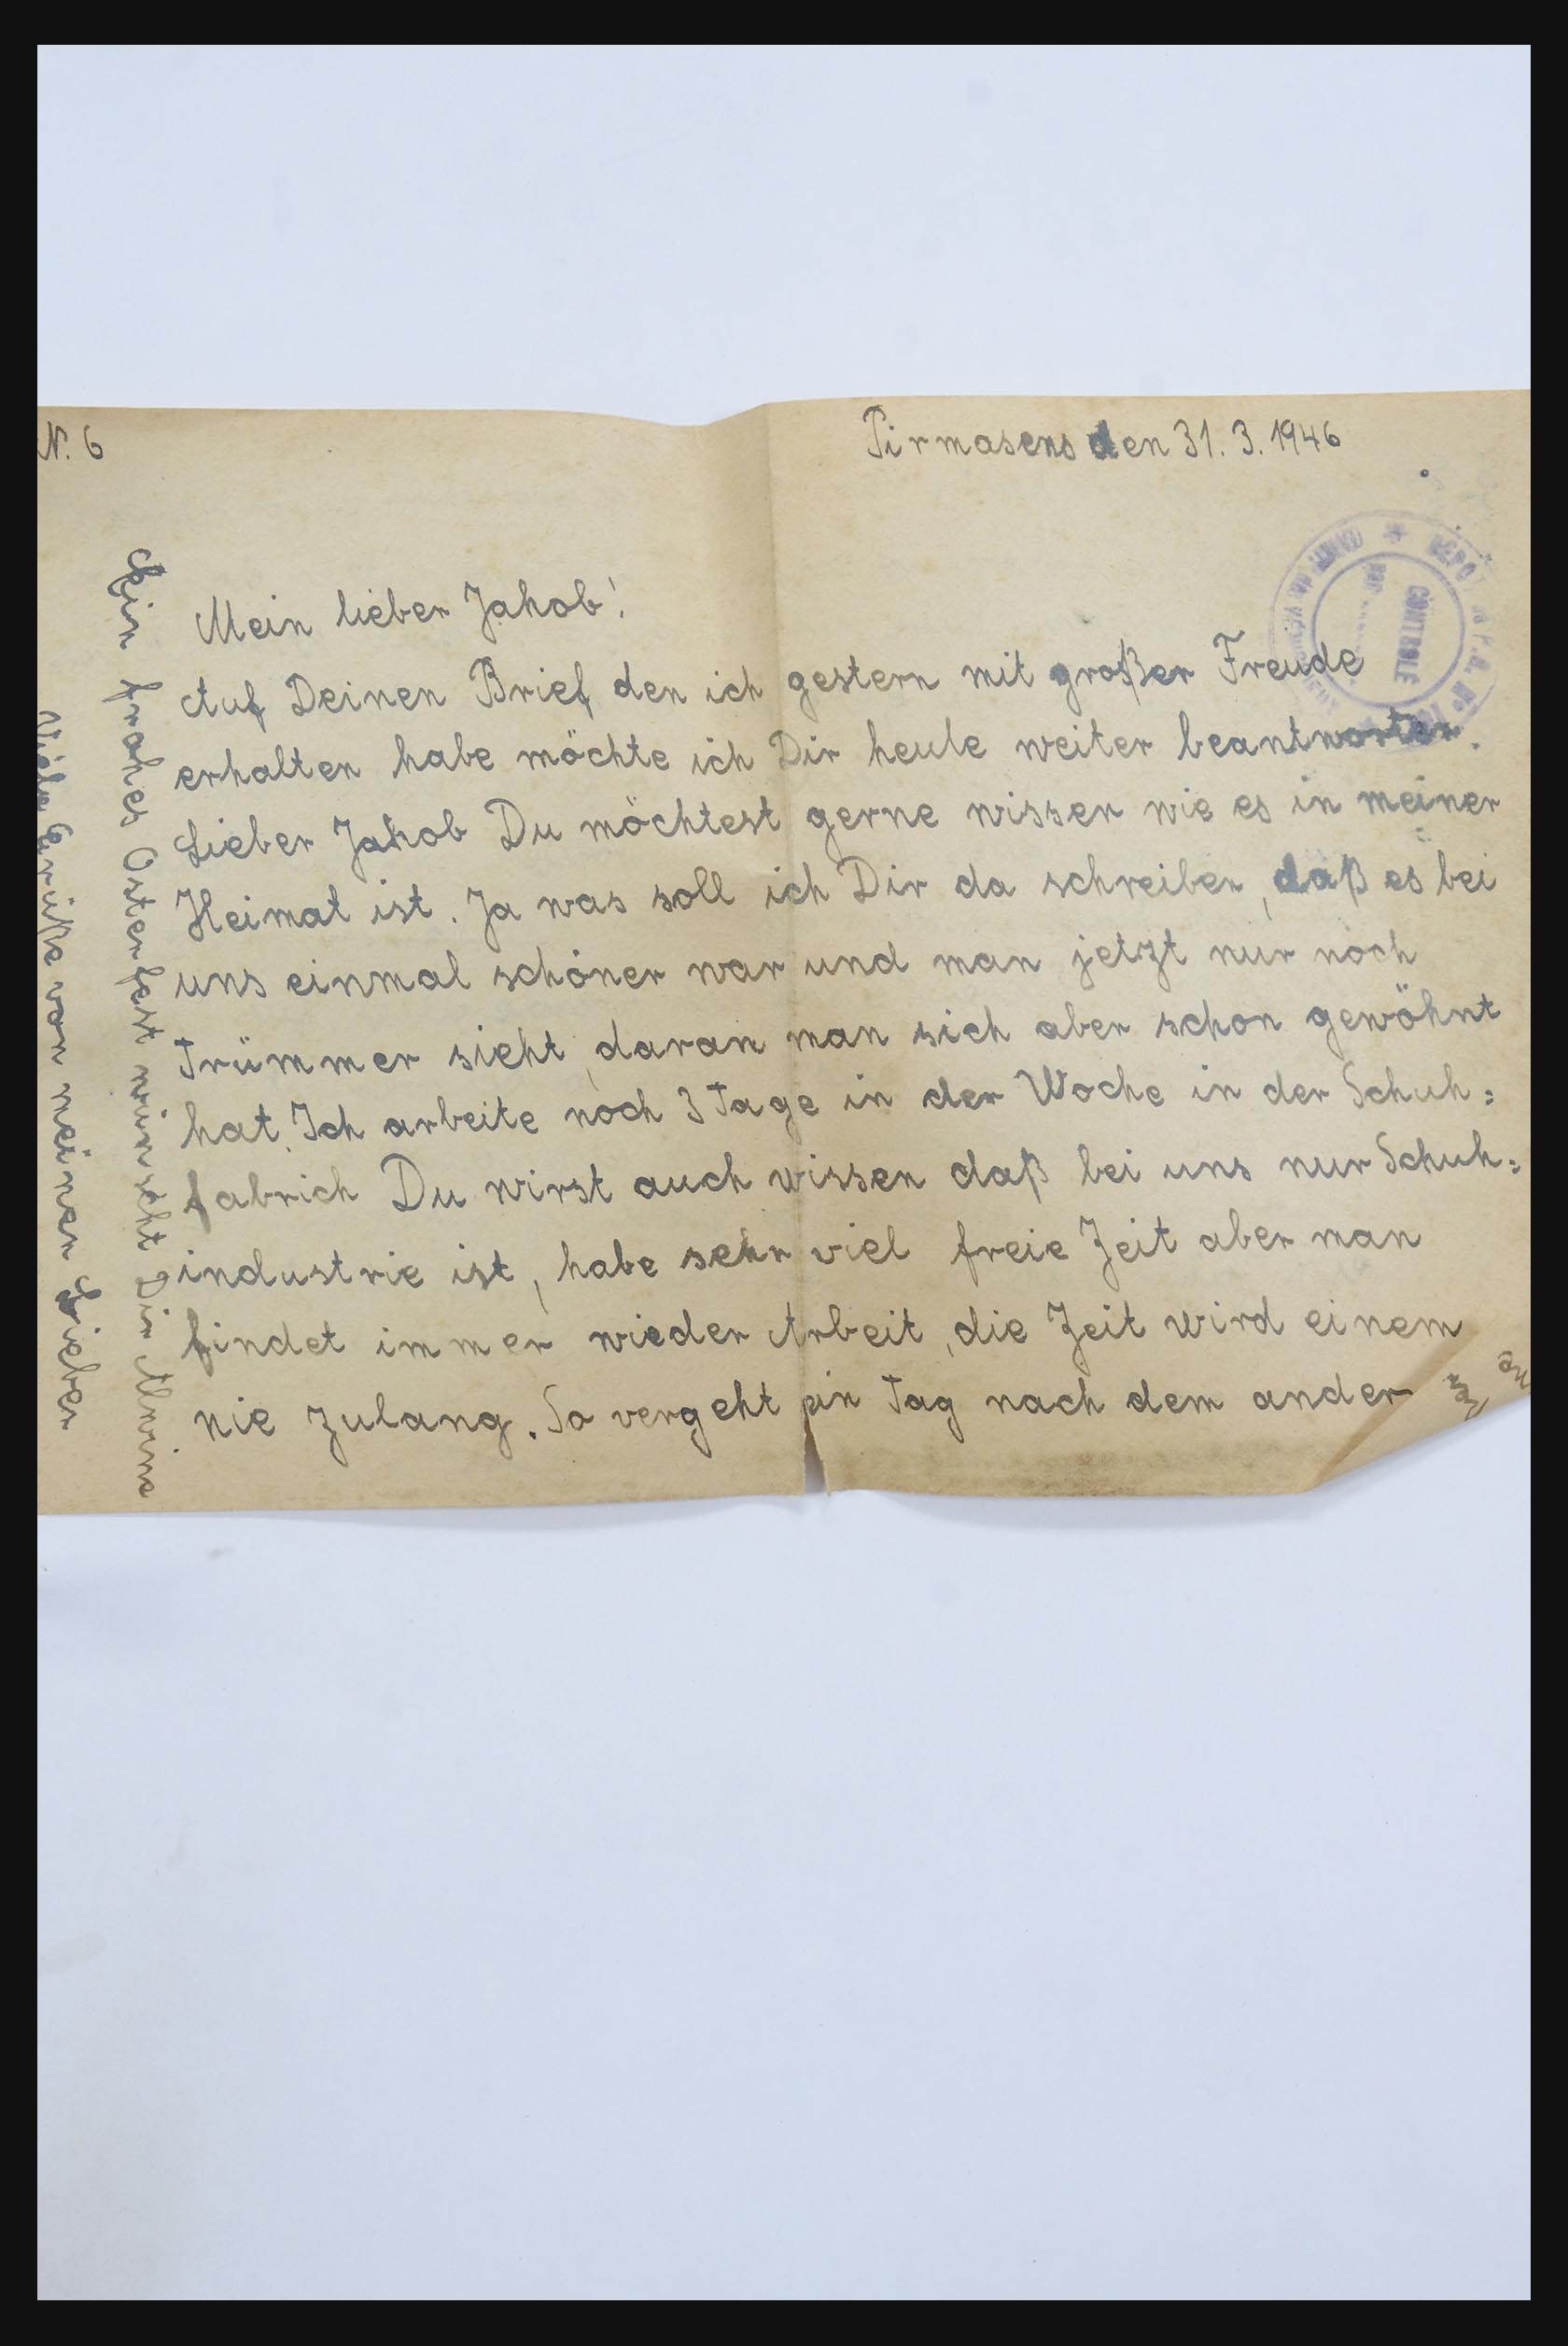 N. 6
Pirmasens den 31. 3. 1946
Mein lieber Jakob!
Auf Deinen Brief den ich gestern mit großer Freude
erhalten habe möchte ich Dir heute weiter beantworten.
Lieber Jakob Du möchtest gerne wissen wie es in meiner
Heimat ist. Ja was soll ich Dir da schreiben, daß es bei
uns einmal schöner war und man jetzt nur noch
Trümmer sieht, daran man sich aber schon gewöhnt
hat. Ich arbeite noch 3 Tage in der Woche in der Schuh:
fabrick Du wirst auch wissen daß bei uns nur Schuh:
industrie ist, habe sehr viel freie Zeit aber man
findet immer wieder Arbeit, die Zeit wird einem
nie zulang. So vergeht ein Tag nach dem ander
Ein frohes Osterfest wünscht Dir Alwine
Viele Grüße von meinen Lieben
CONTROLE
DÉPÔT de P.G. N°